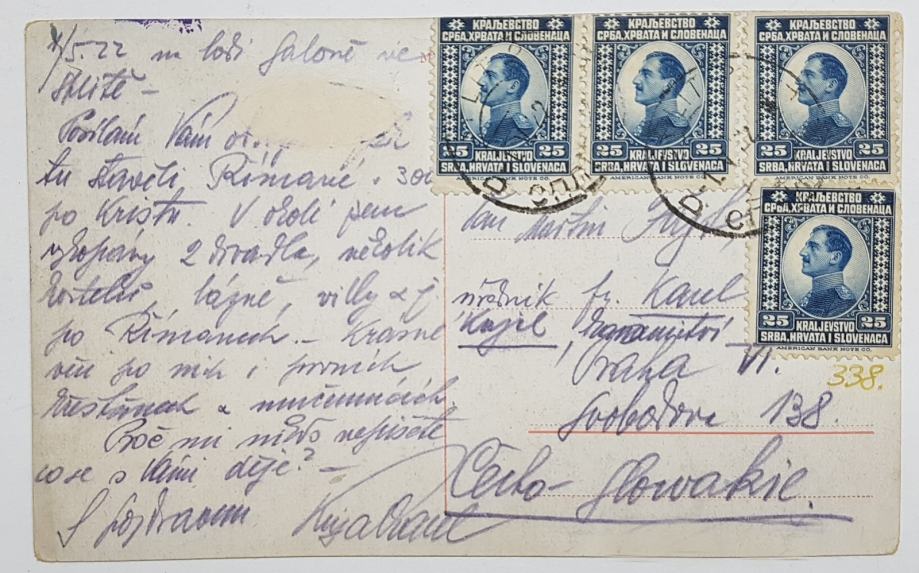 5.22 na lodi Saloně ve
Splitě –
Posílám Vám
tu stavěli Římané 30
po Kristu V okolí jsou
vykopány 2 divadla, několik
kostelů, lázně, villy a j.
po Římanech – krásné
věci po nich i prvních
křesťanech a mučennících.
Proč mi nikdo nepíšete
co se s Vámi děje? –
S pozdravem
КРАЉЕВСТВО
СРБА, ХРВАТА И СЛОВЕНАЦА
25 KRALJEVSTVO 25
SRBA, HRVATA I SLOVENACA
AMERICAN BANK NOTE CO.
КРАЉЕВСТВО
СРБА, ХРВАТА И СЛОВЕНАЦА
25 KRALJEVSTVO 25
SRBA, HRVATA I SLOVENACA
AMERICAN BANK NOTE CO.
КРАЉЕВСТВО
СРБА, ХРВАТА И СЛОВЕНАЦА
25 KRALJEVSTVO 25
SRBA, HRVATA I SLOVENACA
AMERICAN BANK NOTE CO.
КРАЉЕВСТВО
СРБА, ХРВАТА И СЛОВЕНАЦА
25 KRALJEVSTVO 25
SRBA, HRVATA I SLOVENACA
AMERICAN BANK NOTE CO.
úředník fy. Karel
Praha VI.
338.
Svobodova 138.
Čecho-Slowakie.